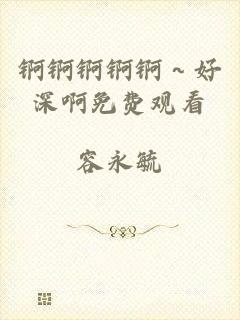 锕锕锕锕锕～好
深啊免费观看
容永毓